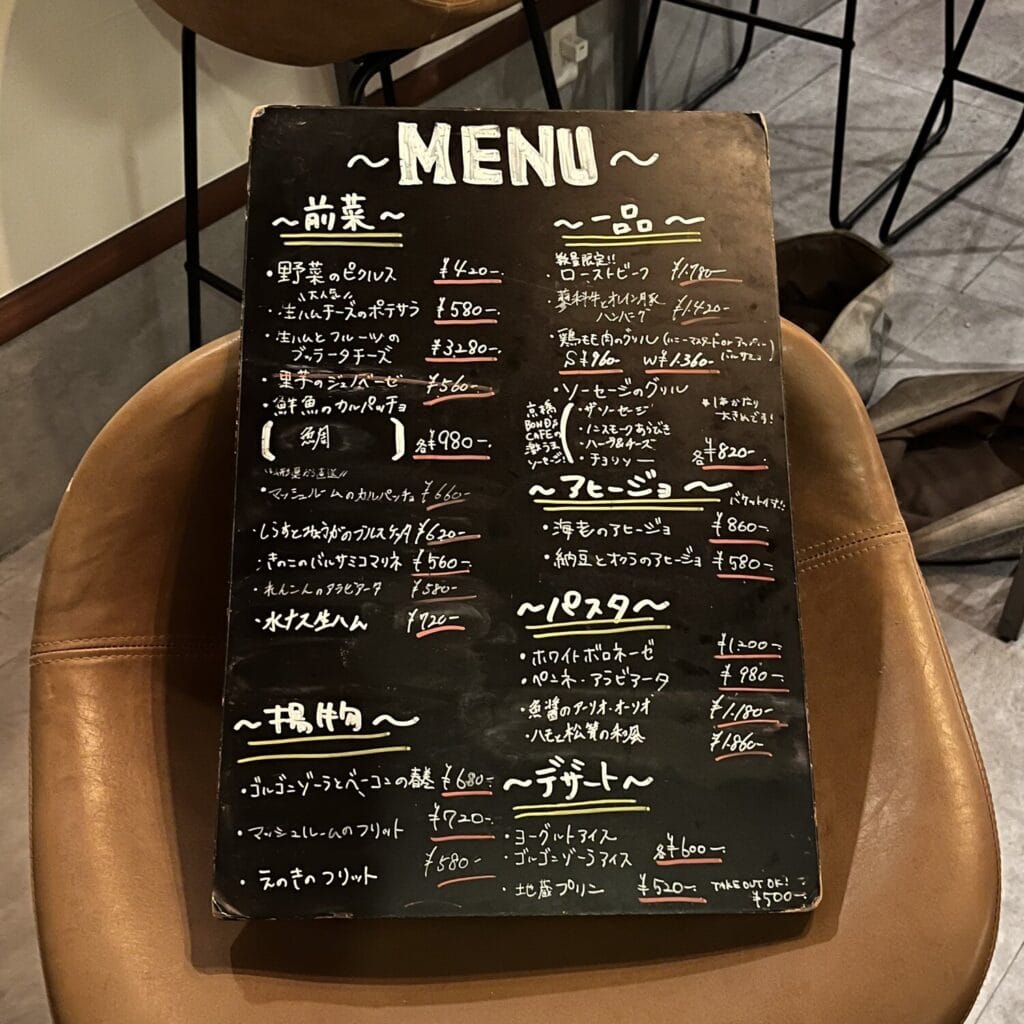 ～MENU～
～前菜～
・野菜のピクルス ¥420-
\\大人気//
・生ハムチーズのポテサラ ¥580-
・生ハムとフルーツの
ブッラータチーズ ¥3,280-
・里芋のジェノベーゼ ¥560-
・鮮魚のカルパッチョ
[ 鯛 ] 各¥980-
・マッシュルームのカルパッチョ ¥660-
・しらすとみょうがのブルスケッタ ¥620-
・きのこのバルサミコマリネ ¥560-
・れんこんのアラビアータ ¥580-
・水ナス生ハム ¥720-
～揚物～
・ゴルゴンゾーラとベーコンの春巻 ¥680-
・マッシュルームのフリット ¥720-
・えのきのフリット ¥580-
～一品～
数量限定!!
・ローストビーフ ¥1.780-
・蓼科牛とオレイン豚
ハンバーグ ¥1.420-
・鶏もも肉のグリル (ハニーマスタード or
バルサミコ)
S ¥960- W ¥1.360-
・ソーセージのグリル
・ザ・ソーセージ
・ノンスモークあらびき
・ハーブ&チーズ
・チョリソー
BOND'S
CAFEの
激うま
ソーセージ!
*1本かなり
大きめです!
各¥820-
～アヒージョ～ バケット付き!!
・海老のアヒージョ ¥860-
・納豆とオクラのアヒージョ ¥580-
～パスタ～
・ホワイトボロネーゼ ¥1.200-
・ペンネ・アラビアータ ¥980-
・魚醤のアーリオ・オーリオ ¥1.180-
・ハモと松茸の和風 ¥1.860-
～デザート～
・ヨーグルトアイス
・ゴルゴンゾーラアイス 各¥600-
・地蔵プリン ¥520- TAKE OUT OK!
¥500-